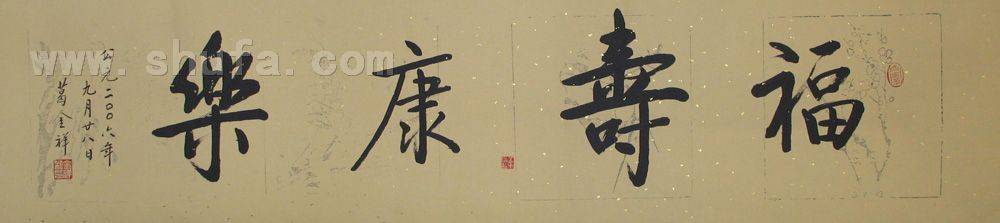 福壽康樂
公元二〇〇六年
九月廿八日
葛金祥
www.shufa.com